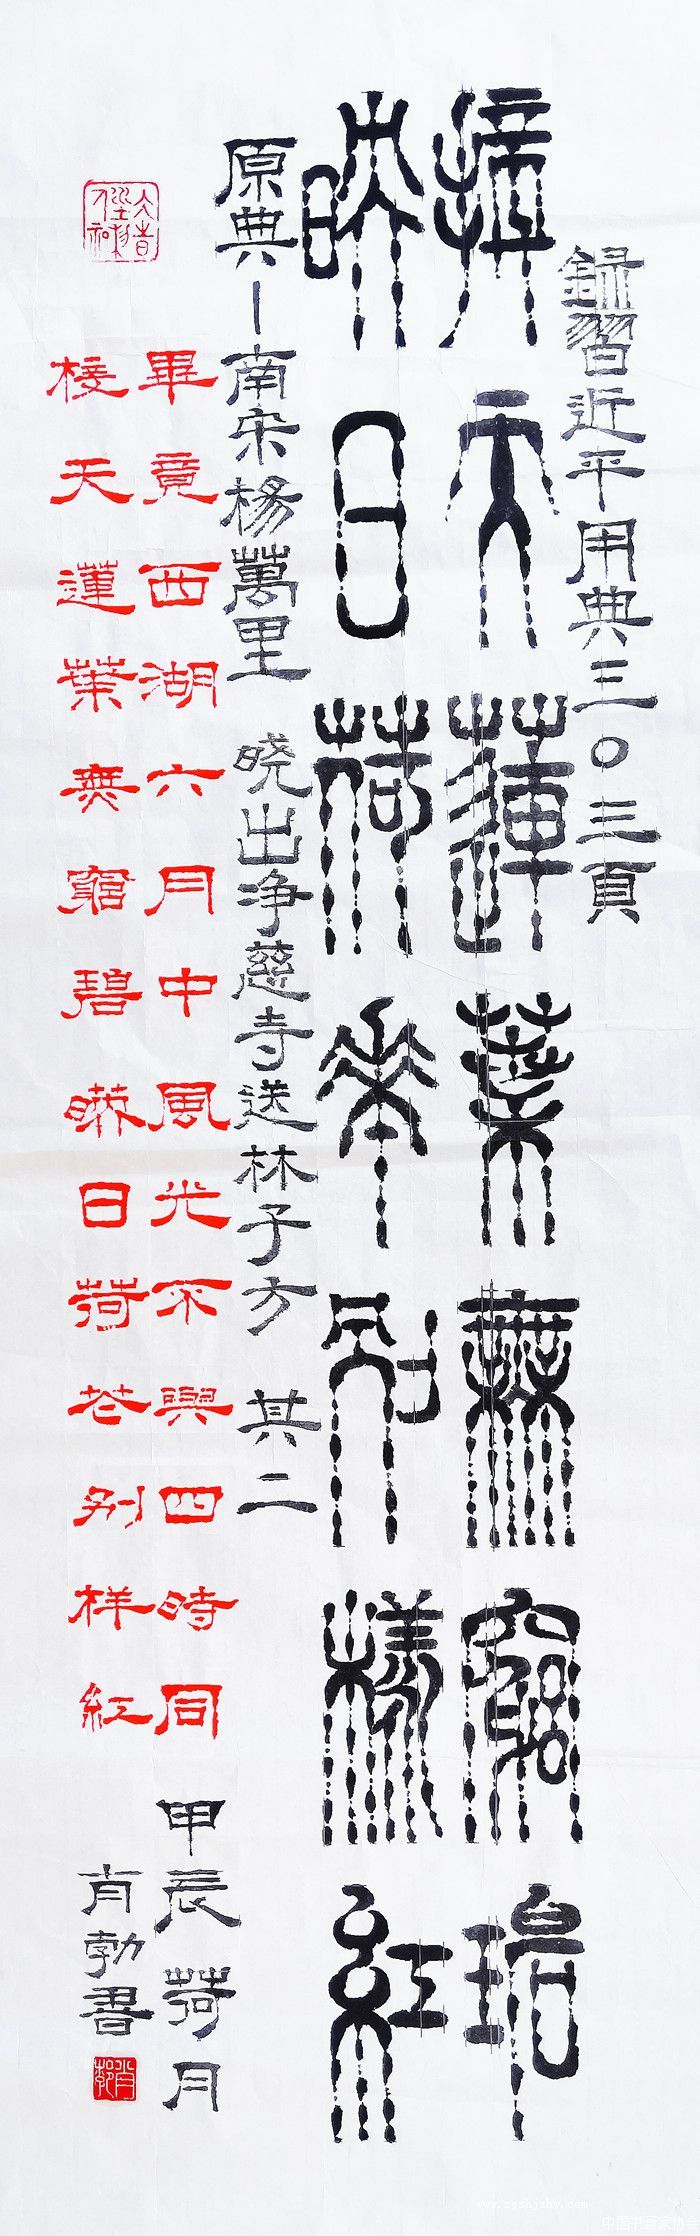 錄習近平用典三〇三頁
接天蓮葉無窮碧
映日荷花别樣紅
原典—南宋楊萬里 晓出净慈寺送林子方 其二
畢竟西湖六月中風光不與四時同
接天蓮葉無窮碧映日荷花别样紅
甲辰荷月
肖勃書
中国书画家协会